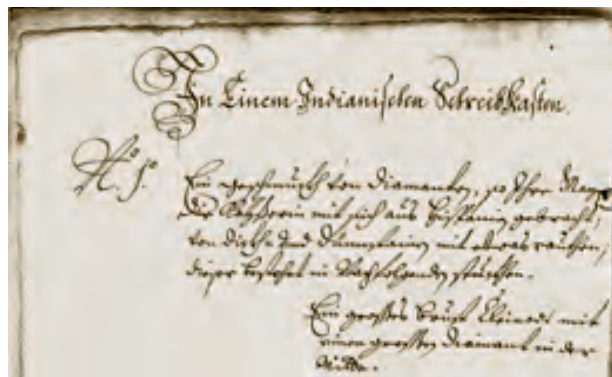 In Einem Indianischen Schreibkasten.
N.º 1.º
Ein geschmuckh von Diamanten, so Ihre May:
die Kayßerin mit sich aus Hispanien gebracht,
von dickhe und Dünnstainen mit etwas rauthen,
dieser bestehet in Nachfolgenden stuckhen.
Ein großes Brust Kleinod mit
einem großen diamant in der
Mitte.